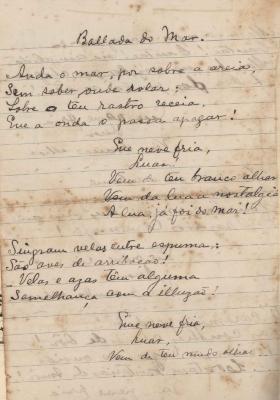 Ballada do Mar.
Anda o mar, por sobre a areia,
Sem saber onde rolar:
Sobre o teu rastro receia
Que a onda o possa apagar!
Que neve fria,
Luar,
Vem do teu branco olhar
Vem da lua a nostalgia
A lua, já foi do mar!
Singram velas entre espuma:
São aves de arribação!
Velas e azas têm alguma
Semelhança com a illuzão!
Que neve fria,
Luar,
Vem do teu olhar